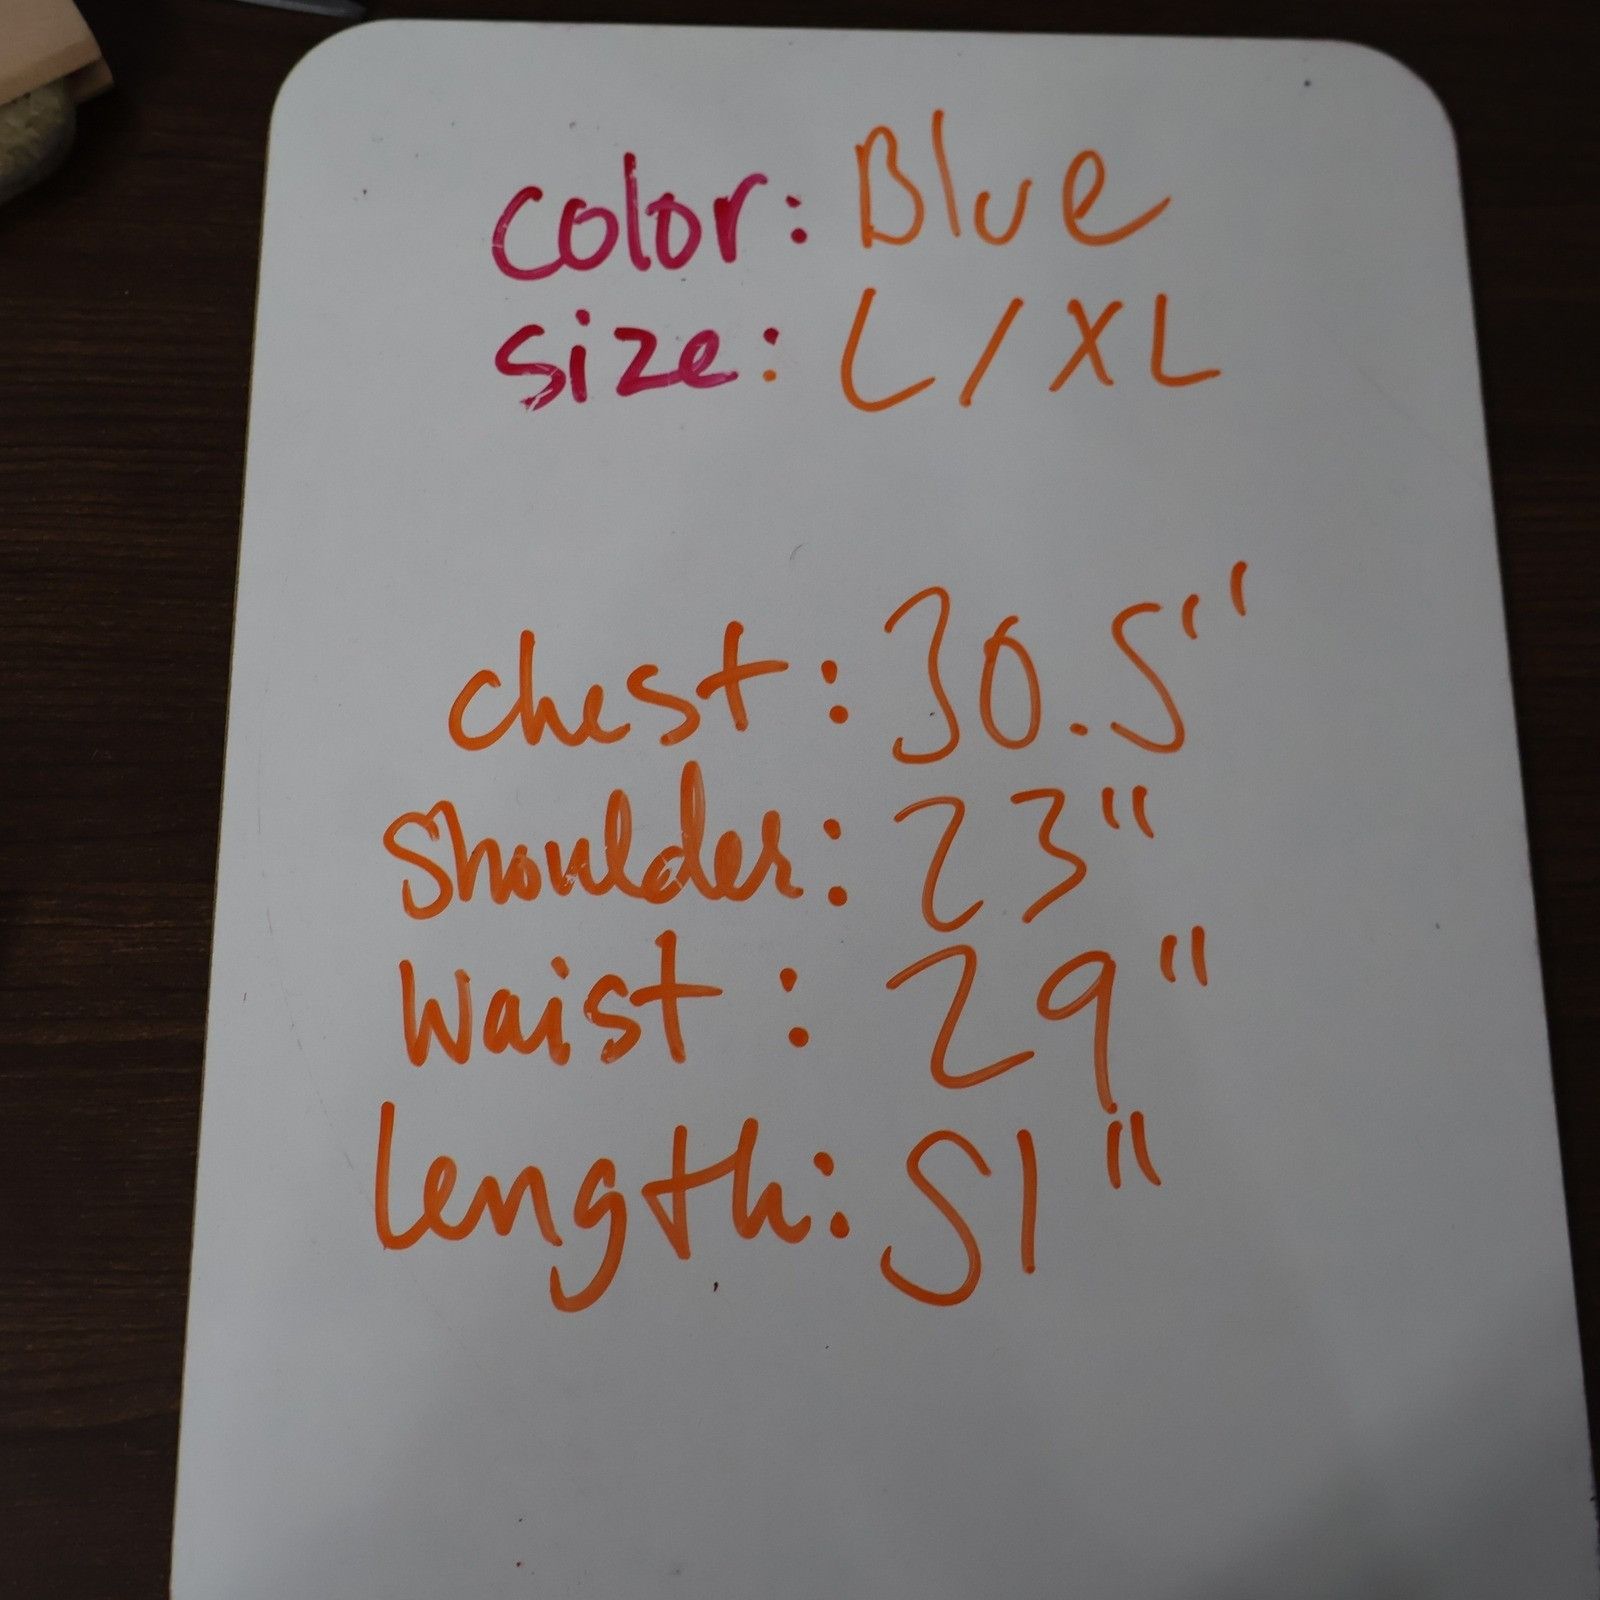 color: Blue
size: L/XL
chest: 30.5"
Shoulder: 23"
Waist: 29"
Length: 51"